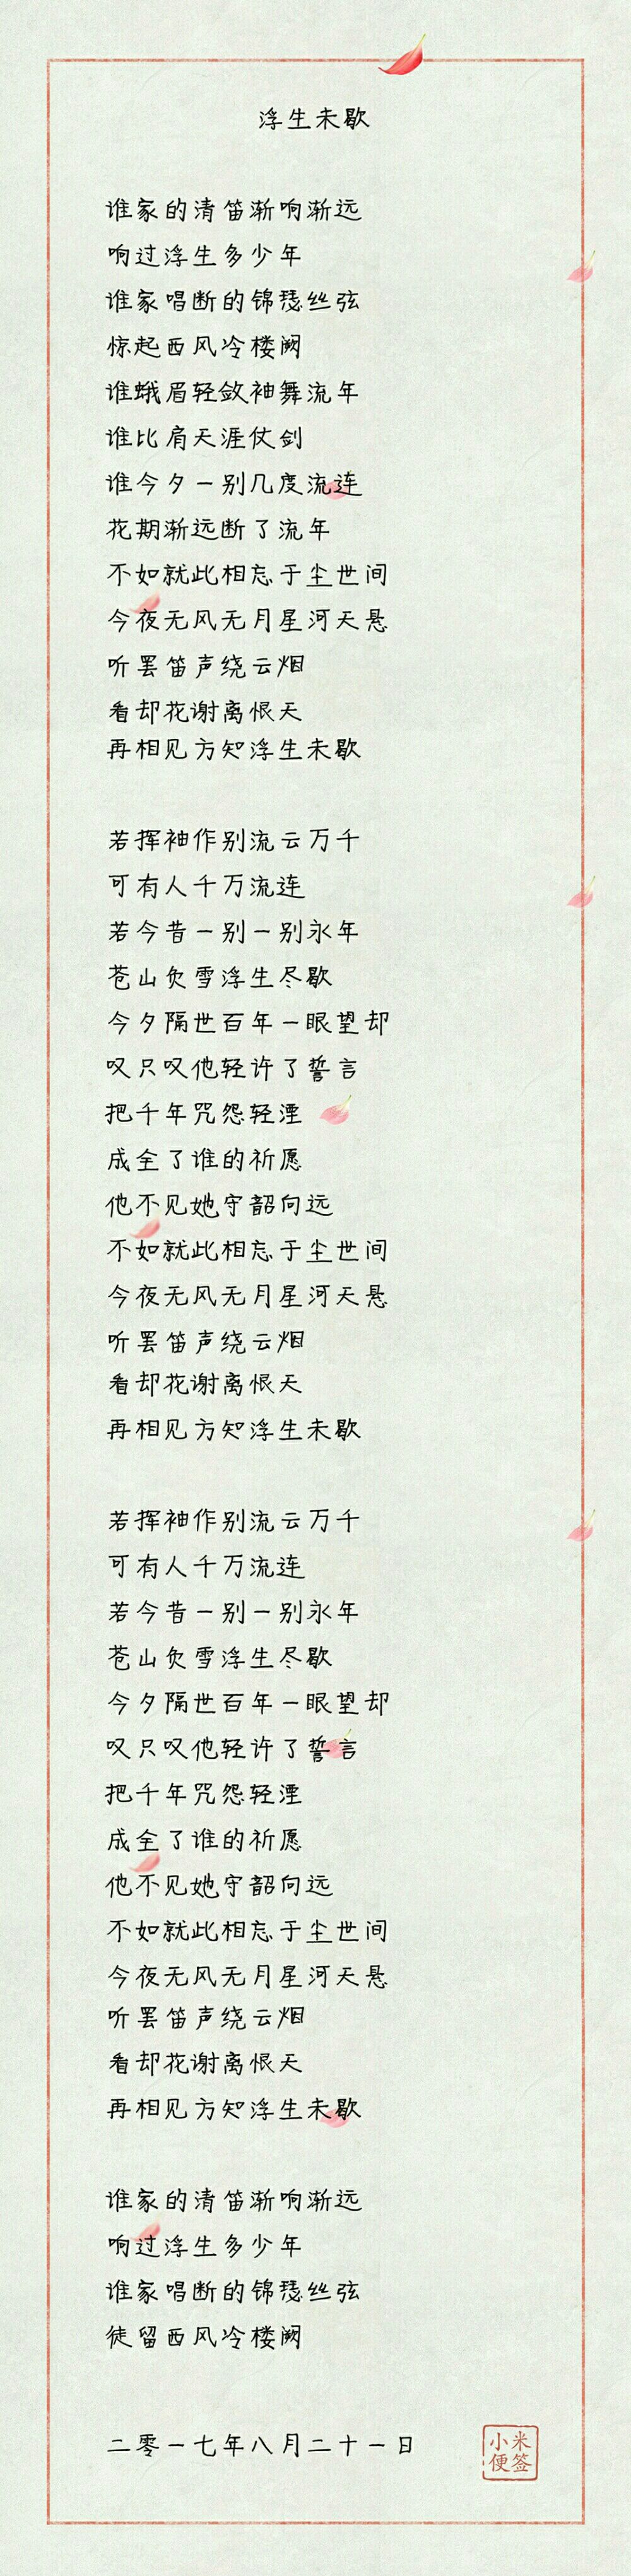 浮生未歇
谁家的清笛渐响渐远
响过浮生多少年
谁家唱断的锦瑟丝弦
惊起西风冷楼阙
谁蛾眉轻敛袖舞流年
谁比肩天涯仗剑
谁今夕一别几度流连
花期渐远断了流年
不如就此相忘于尘世间
今夜无风无月星河天悬
听罢笛声绕云烟
看却花谢离恨天
再相见方知浮生未歇
若挥袖作别流云万千
可有人千万流连
若今昔一别一别永年
苍山负雪浮生尽歇
今夕隔世百年一眼望却
叹只叹他轻许了誓言
把千年咒怨轻湮
成全了谁的祈愿
他不见她守韶向远
不如就此相忘于尘世间
今夜无风无月星河天悬
听罢笛声绕云烟
看却花谢离恨天
再相见方知浮生未歇
若挥袖作别流云万千
可有人千万流连
若今昔一别一别永年
苍山负雪浮生尽歇
今夕隔世百年一眼望却
叹只叹他轻许了誓言
把千年咒怨轻湮
成全了谁的祈愿
他不见她守韶向远
不如就此相忘于尘世间
今夜无风无月星河天悬
听罢笛声绕云烟
看却花谢离恨天
再相见方知浮生未歇
谁家的清笛渐响渐远
响过浮生多少年
谁家唱断的锦瑟丝弦
徒留西风冷楼阙
二零一七年八月二十一日
小米
便签